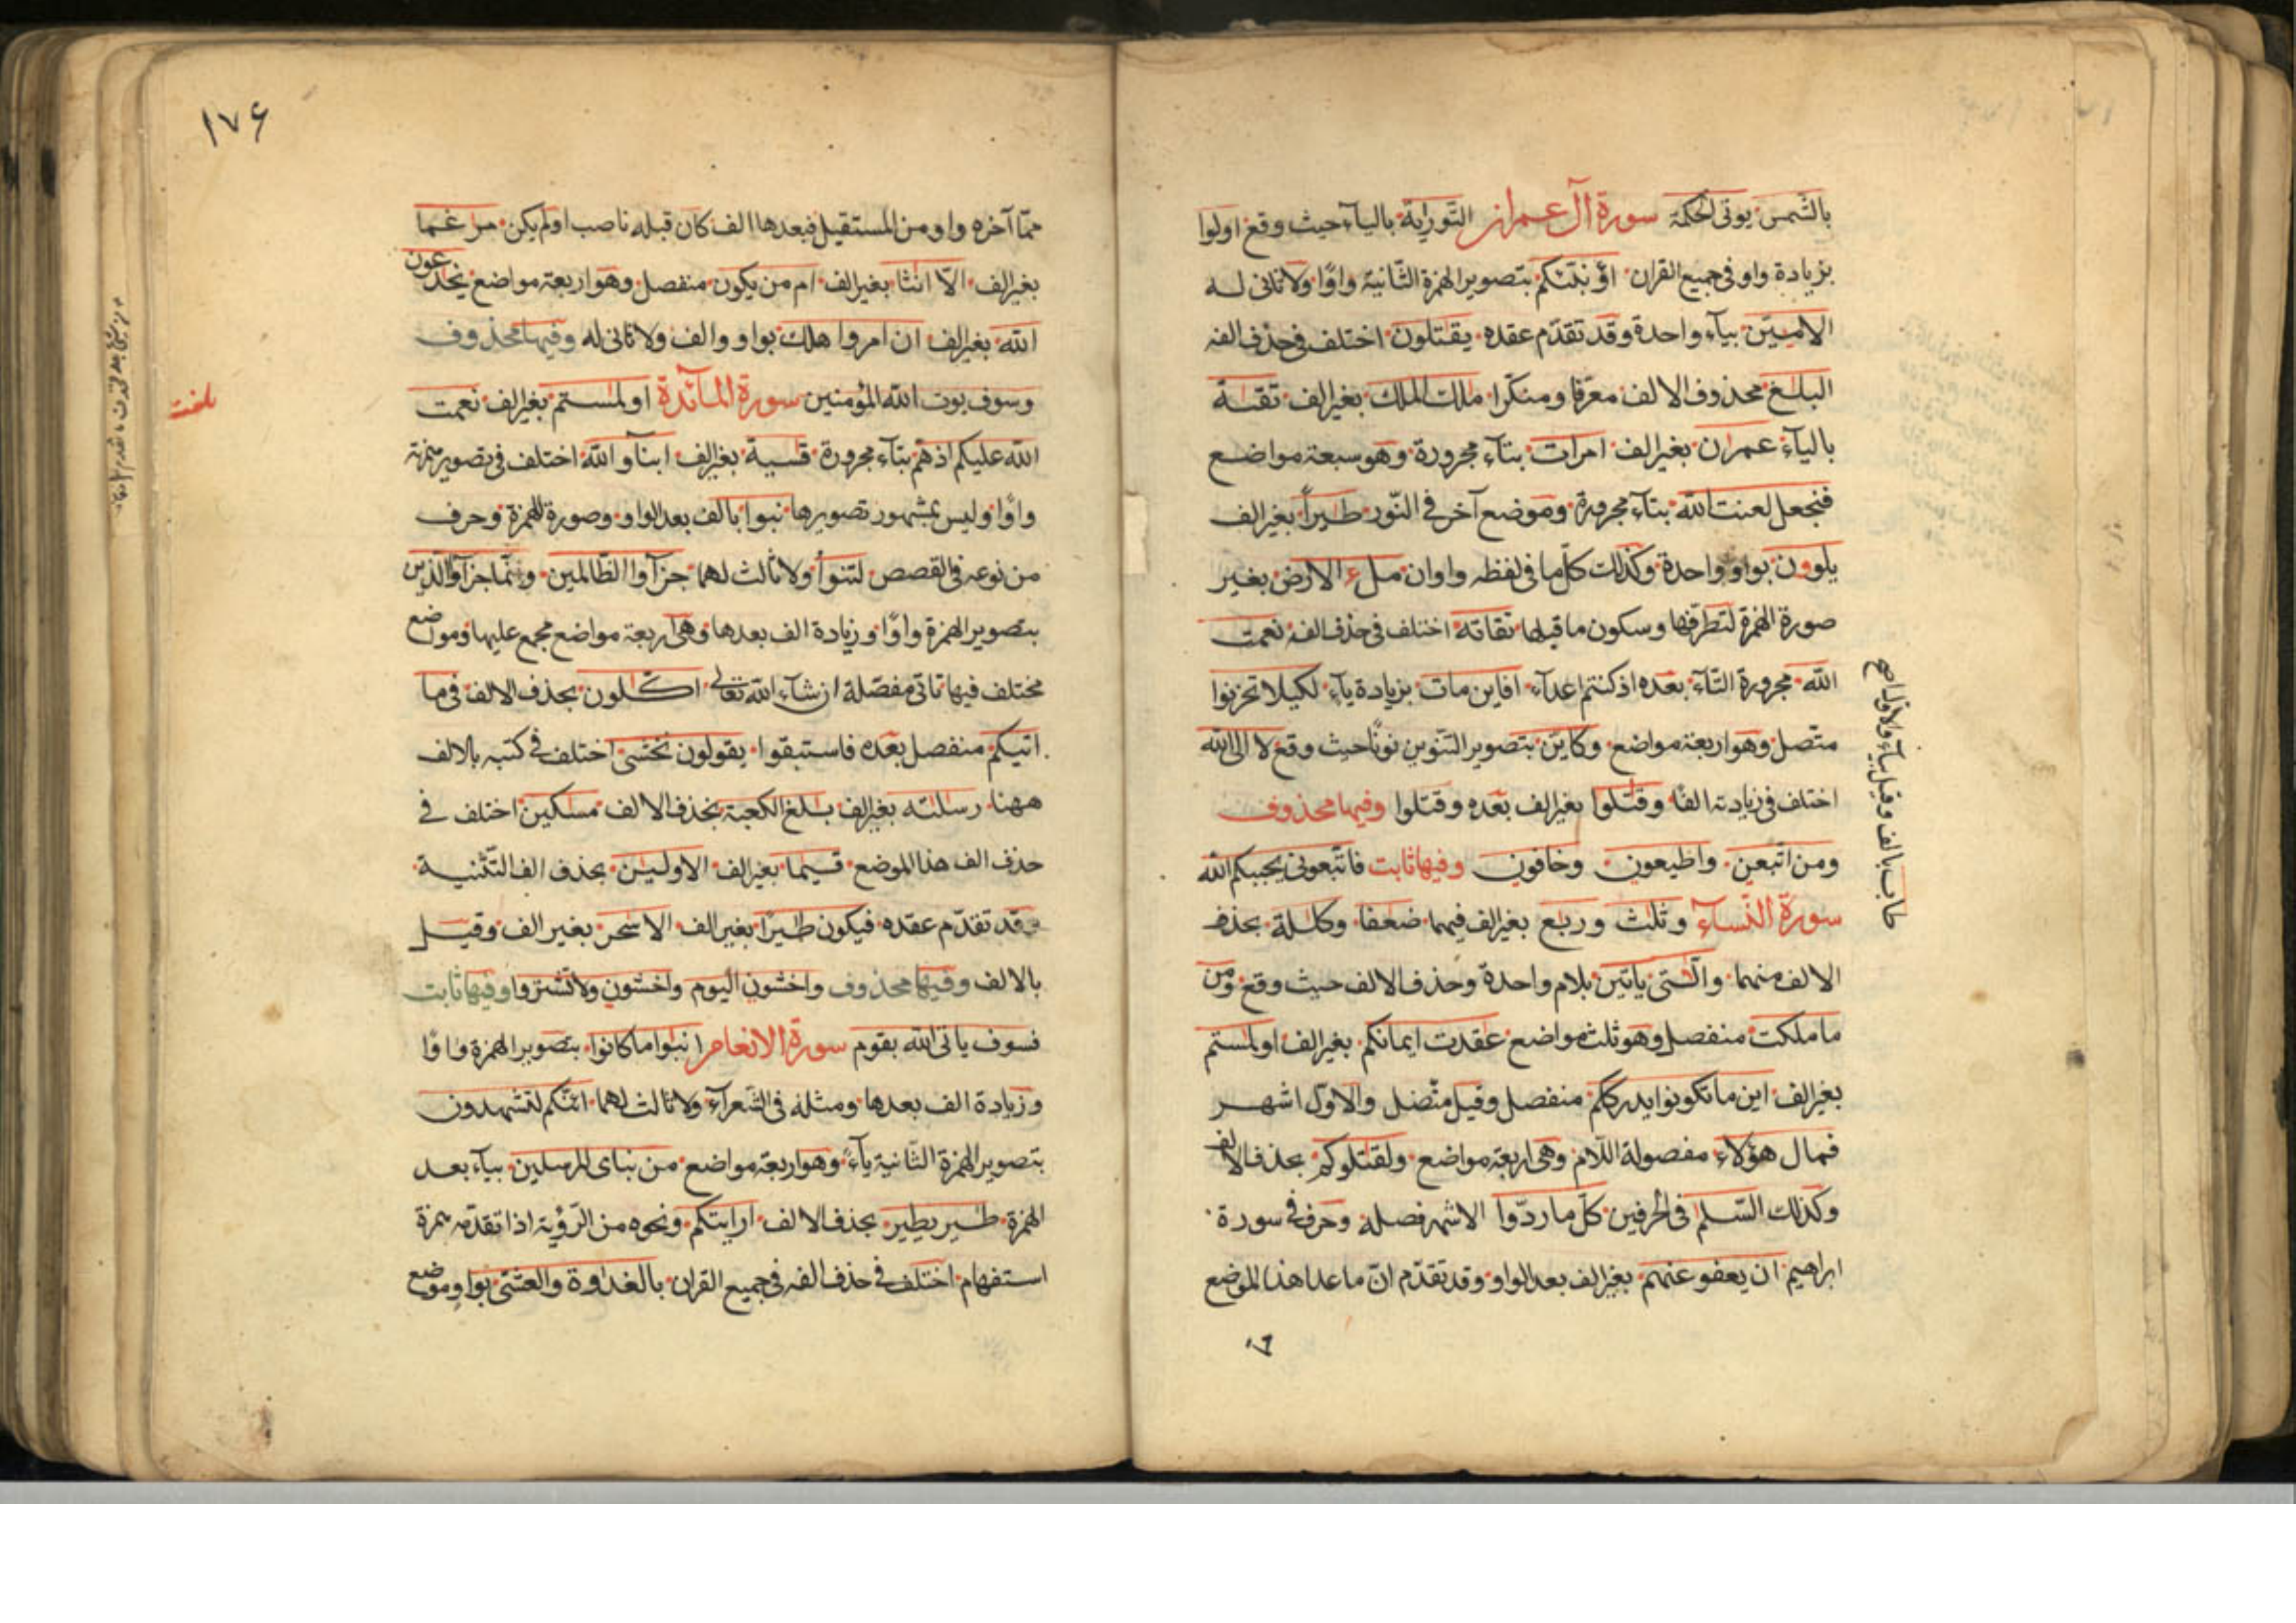 بالشمس يوتى الحكمة سورة آل عمران التورية بالياء حيث وقع اولوا
بزيادة واو في جميع القران اؤنبئكم بتصوير الهمزة الثانية واوًا ولا ثانى له
الاميين بياء واحدة وقد تقدم عقده يقتلون اختلف في حذف الفه
البلغ محذوف الالف معرفا ومنكرا ملك الملك بغير الف تقية
بالياء عمران بغير الف امرات بتاء مجرورة وهو سبعة مواضع
فنجعل لعنت الله بتاء مجرورة وموضع آخر في النور طيراً بغير الف
يلوون بواو واحدة وكذلك كل ما في لفظه واوان ملء الارض بغير
صورة الهمزة لتطرفها وسكون ما قبلها تقاته اختلف في حذف الفه نعمت
الله مجرورة التاء بعده اذ كنتم اعداء افاين مات بزيادة ياء لكيلا تحزنوا
متصل وهو اربعة مواضع وكاين بتصوير التنوين نونًا حيث وقع لا الى الله
اختلف في زيادته الفًا وقتلوا بغير الف بعده وقتلوا وفيها محذوف
ومن اتبعن واطيعون وخافون وفيها ثابت فاتبعونى يحببكم الله
سورة النساء وثلث وربع بغير الف فيهما ضعفا وكللة بحذف
الالف منهما والتى ياتين بلام واحدة وحذف الالف حيث وقع ومن
ما ملكت منفصل وهو ثلث مواضع عقدت ايمانكم بغير الف او لمستم
بغير الف اين ما تكونوا يدرككم منفصل وقيل متصل والاول اشهر
فمال هؤلاء مفصولة اللام وهى اربعة مواضع ولقتلوكم بحذف الالف
وكذلك السلم في الحرفين كل ما ردوا الاشهر فصله وحرف في سورة
ابراهيم ان يعفو عنهم بغير الف بعد الواو وقد تقدم ان ما عدا هذا الموضع
بالف وقيل بياء والاول اصح
١٧۶
مما آخره واو من المستقيل فبعدها الف كان قبله ناصب او لم يكن مرغما
بغير الف الا انثا بغير الف ام من يكون منفصل وهو اربعة مواضع يخدعون
الله بغير الف ان امروا هلك بواو والف ولا ثانى له وفيها محذوف
وسوف يوت الله المؤمنين سورة المائدة او لمستم بغير الف نعمت
الله عليكم اذ هم بتاء مجرورة قسية بغير الف ابنآو الله اختلف في تصوير همزته
واوًا وليس بمشهور تصويرها نبوا بالف بعد الواو وصورة للهمزة وحرف
من نوعه في القصص لتنوأ ولا ثالث لهما جزآوا الظالمين وانما جزآوا الذين
بتصوير الهمزة واوًا وزيادة الف بعدها وهى اربعة مواضع مجمع عليها ومواضع
مختلف فيها تاتى مفصلة ان شاء الله تعالى اكلون بحذف الالف في ما
اتيكم منفصل بعده فاستبقوا يقولون نخشى اختلف في كتبه بالالف
ههنا رسلته بغير الف بلغ الكعبة بحذف الالف مسكين اختلف في
حذف الف هذا الموضع قيما بغير الف الاولين بحذف الف التثنية
وقد تقدم عقده فيكون طيرًا بغير الف الا سحر بغير الف وقيل
بالالف وفيها محذوف واخشون اليوم واخشون ولا تشتروا وفيها ثابت
فسوف ياتى الله بقوم سورة الانعام انبوا ما كانوا بتصوير الهمزة واوًا
وزيادة الف بعدها ومثله في الشعرآء ولا ثالث لهما ائنكم لتشهدون
بتصوير الهمزة الثانية ياءً وهو اربعة مواضع من نباى المرسلين بياء بعد
الهمزة طير يطير بحذف الالف ارايتكم ونحوه من الرؤية اذا تقدمه همزة
استفهام اختلف في حذف الفه في جميع القران بالغداوة والعشى بواو وموضع
بلغت